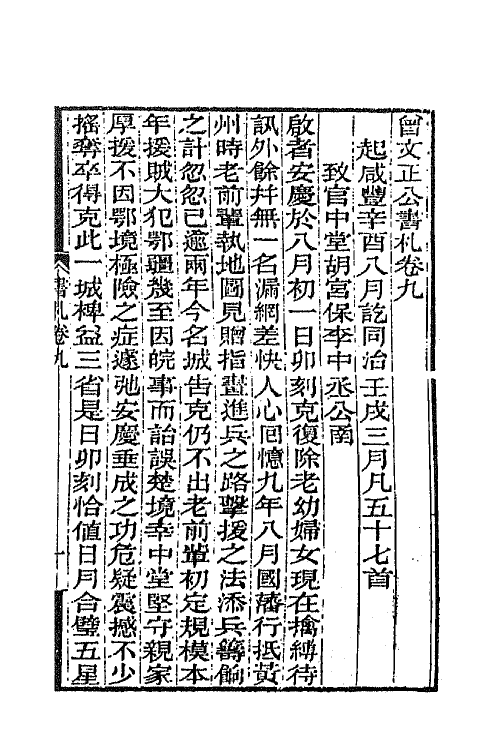 曾文正公書札卷九
起咸豐辛酉八月訖同治壬戌三月凡五十七首
致官中堂胡宮保李中丞公南
啟者安慶於八月初一日卯刻克復除老幼婦女現在擒縛待
訊外餘幷無一名漏網差快人心回憶九年八月國藩行抵黃
州時老前輩執地圖見贈指畫進兵之路擊援之法添兵籌餉
之計忽忽已逾兩年今名城告克仍不出老前輩初定規模本
年援賊大犯鄂疆幾至因皖事而詒誤楚境幸中堂堅守親家
厚援不因鄂境極險之症遽弛安慶垂成之功危疑震撼不少
搖奪卒得克此一城裨益三省是日卯刻恰値日月合璧五星
書札卷九
一